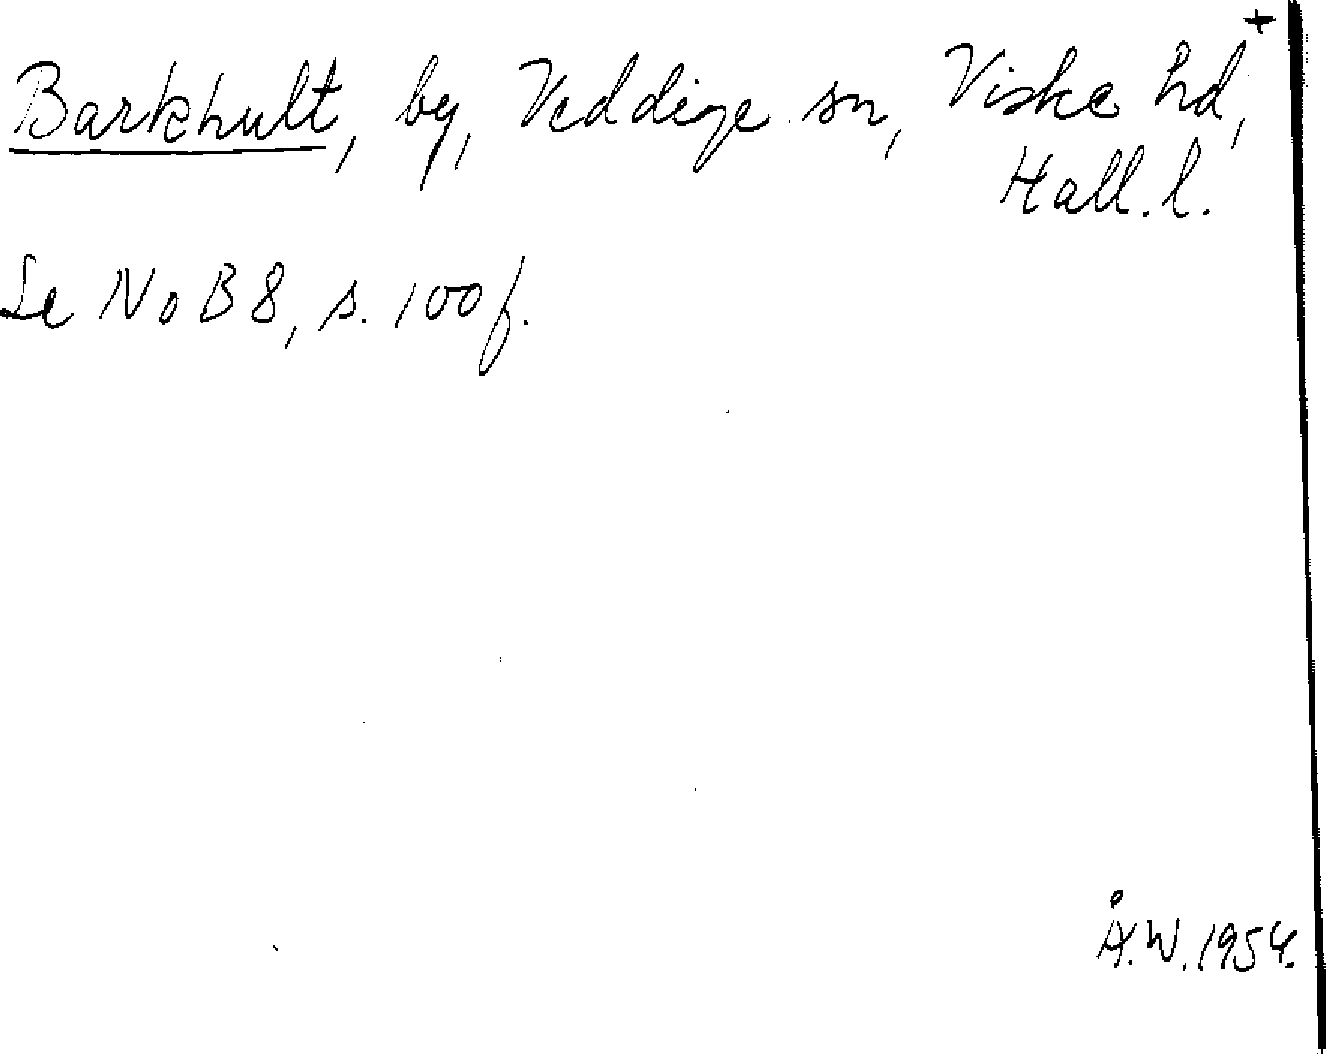 +
Barkhult, by, Veddige sn, Viske hd,
Hall. l.
Se NoB 8, s. 100 f.
Å.W. 1954.